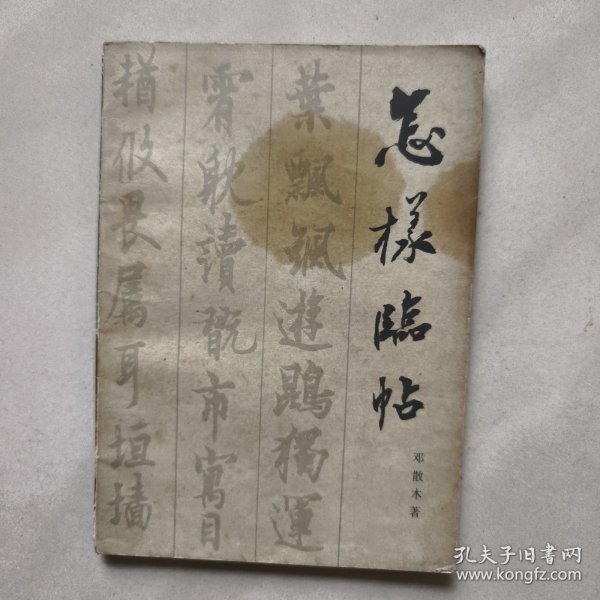 怎樣臨帖
邓散木著
葉飄颻遊鵾獨運
霄耽讀翫市寓目
輶攸畏属耳垣墻
孔夫子旧書网
www.kongfz.com